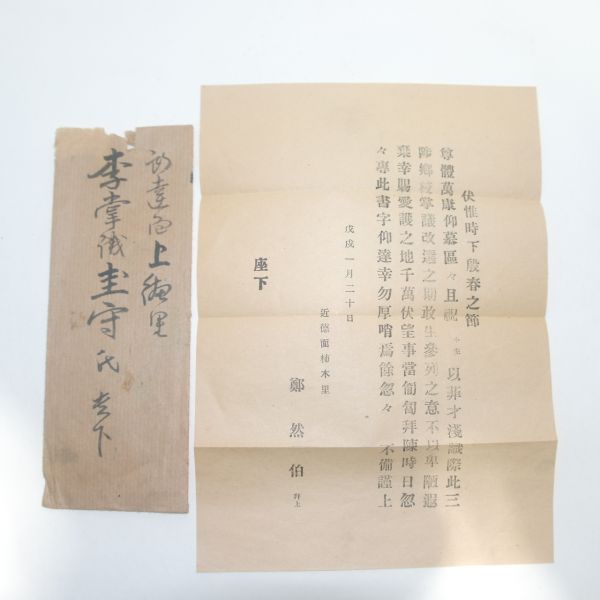 伏惟時下殷春之節
尊體萬康仰慕區々且祝 小生 以菲才淺識際此三
陟鄕校掌議改選之期敢生參列之意不以卑陋遐
棄幸賜愛護之地千萬伏望事當匍匐拜陳時日忽
々專此書字仰達幸勿厚誚爲餘忽々 不備謹上
戊戌一月二十日
近德面柿木里
鄭然伯 拜上
座下
達面上里
李掌議圭守氏 下